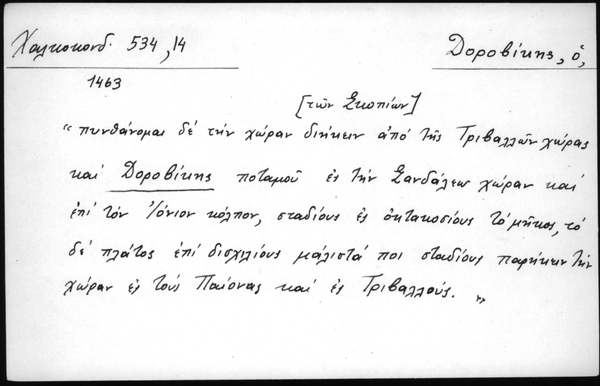 Χαλκοκονδ. 534,14 Δοροβίκης, ὁ,
1463
[τῶν Σκοπίων]
"πυνθάνομαι δέ τήν χώραν διήκειν ἀπό τῆς Τριβαλλῶν χώρας
καί Δοροβίκης ποταμοῦ ἐς τήν Σανδάλεω χώραν καί
ἐπί τόν Ἰόνιον κόλπον, σταδίους ἐς ὀκτακοσίους τό μῆκος, τό
δέ πλάτος ἐπί δισχιλίους μάλιστά ποι σταδίους παρήκειν τήν
χώραν ἐς τούς Παίονας καί ἐς Τριβαλλούς."